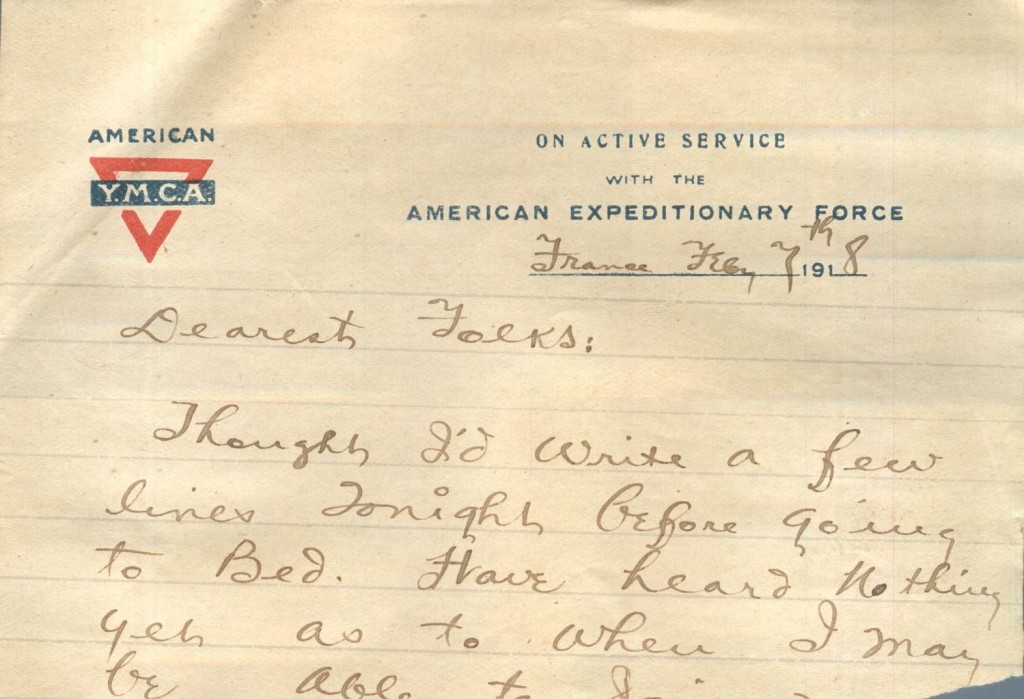 AMERICAN
Y.M.C.A.
ON ACTIVE SERVICE
WITH THE
AMERICAN EXPEDITIONARY FORCE
France Feby 7th 1918
Dearest Folks:
Thought I'd write a few
lines Tonight before going
to Bed. Have heard Nothing
yet as to when I may
be able to